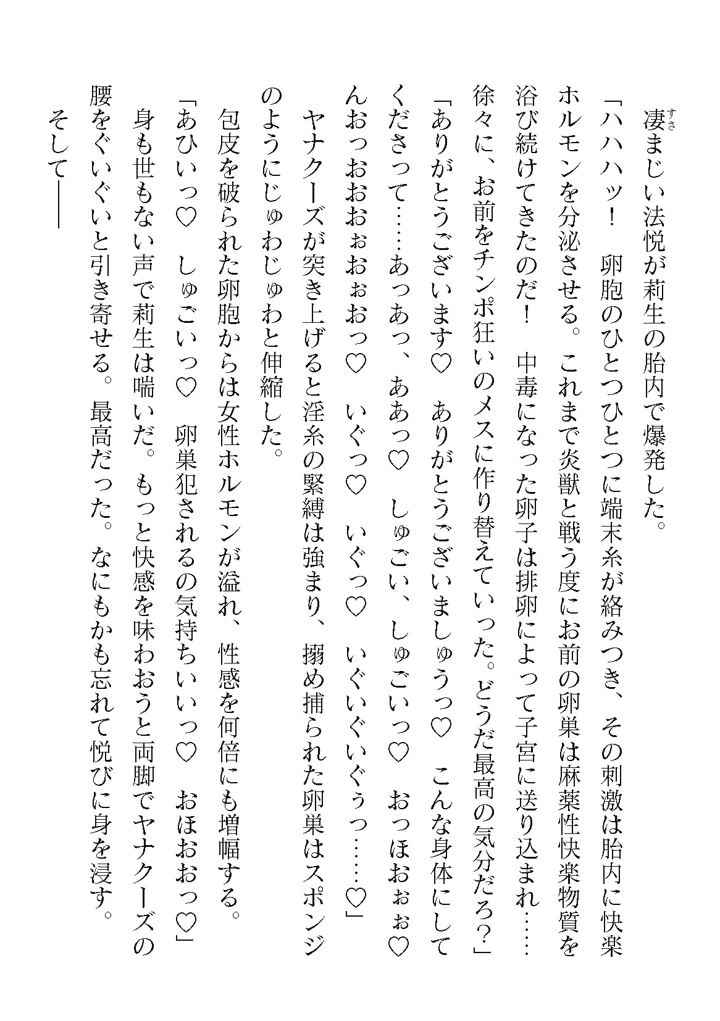 凄まじい法悦が莉生の胎内で爆発した。
「ハハハッ!　卵胞のひとつひとつに端末糸が絡みつき、その刺激は胎内に快楽
ホルモンを分泌させる。これまで炎獣と戦う度にお前の卵巣は麻薬性快楽物質を
浴び続けてきたのだ!　中毒になった卵子は排卵によって子宮に送り込まれ……
徐々に、お前をチンポ狂いのメスに作り替えていった。どうだ最高の気分だろ?」
「ありがとうございます♡　ありがとうございましゅうっ♡　こんな身体にして
くださって……あっあっ、ああっ♡　しゅごい、しゅごいっ♡　おっほおぉぉ♡
んおっおおおぉおぉおっ♡　いぐっ♡　いぐっ♡　いぐいぐいぐぅっ……♡」
ヤナクーズが突き上げると淫糸の緊縛は強まり、搦め捕られた卵巣はスポンジ
のようにじゅわじゅわと伸縮した。
包皮を破られた卵胞からは女性ホルモンが溢れ、性感を何倍にも増幅する。
「あひいっ♡　しゅごいっ♡　卵巣犯されるの気持ちいいっ♡　おほおおっ♡」
身も世もない声で莉生は喘いだ。もっと快感を味わおうと両脚でヤナクーズの
腰をぐいぐいと引き寄せる。最高だった。なにもかも忘れて悦びに身を浸す。
そして――